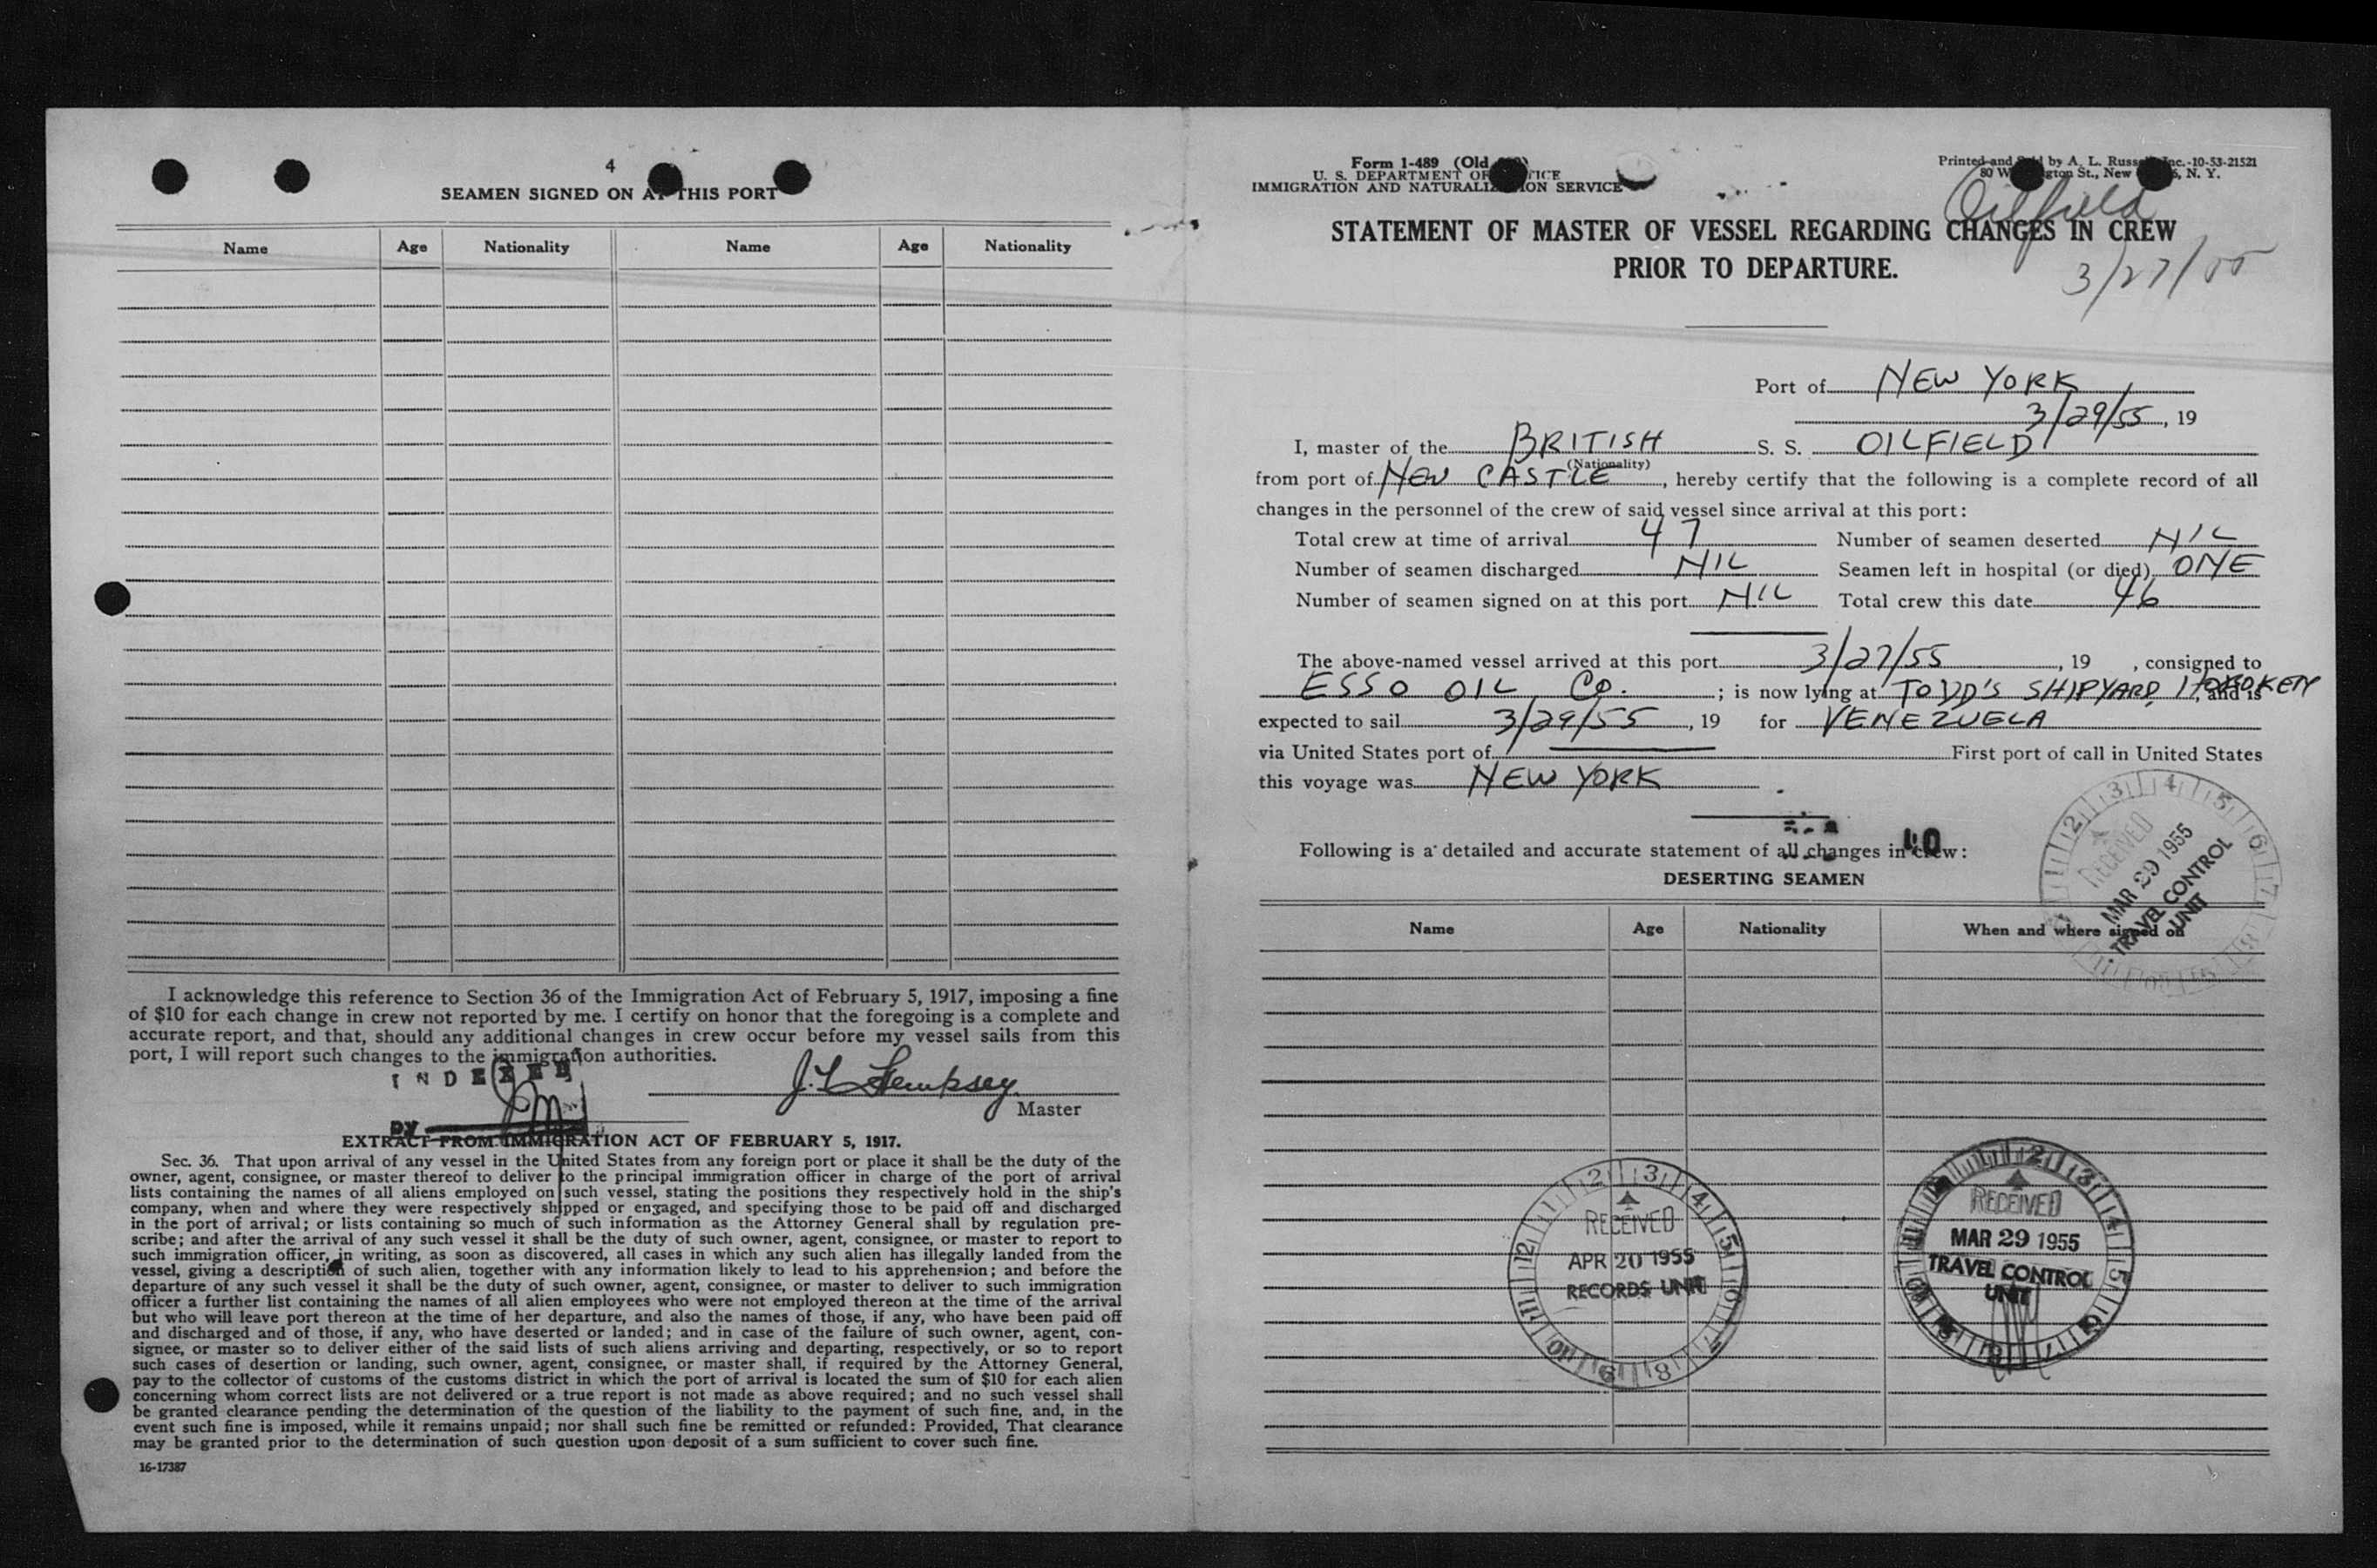 4
SEAMEN SIGNED ON AT THIS PORT
Name Age Nationality Name Age Nationality
I acknowledge this reference to Section 36 of the Immigration Act of February 5, 1917, imposing a fine
of $10 for each change in crew not reported by me. I certify on honor that the foregoing is a complete and
accurate report, and that, should any additional changes in crew occur before my vessel sails from this
port, I will report such changes to the immigration authorities.
INDEXED
Master
by
EXTRACT FROM IMMIGRATION ACT OF FEBRUARY 5, 1917.
Sec. 36. That upon arrival of any vessel in the United States from any foreign port or place it shall be the duty of the
owner, agent, consignee, or master thereof to deliver to the principal immigration officer in charge of the port of arrival
lists containing the names of all aliens employed on such vessel, stating the positions they respectively hold in the ship's
company, when and where they were respectively shipped or engaged, and specifying those to be paid off and discharged
in the port of arrival; or lists containing so much of such information as the Attorney General shall by regulation pre-
scribe; and after the arrival of any such vessel it shall be the duty of such owner, agent, consignee, or master to report to
such immigration officer, in writing, as soon as discovered, all cases in which any such alien has illegally landed from the
vessel, giving a description of such alien, together with any information likely to lead to his apprehension; and before the
departure of any such vessel it shall be the duty of such owner, agent, consignee, or master to deliver to such immigration
officer a further list containing the names of all alien employees who were not employed thereon at the time of the arrival
but who will leave port thereon at the time of her departure, and also the names of those, if any, who have been paid off
and discharged and of those, if any, who have deserted or landed; and in case of the failure of such owner, agent, con-
signee, or master so to deliver either of the said lists of such aliens arriving and departing, respectively, or so to report
such cases of desertion or landing, such owner, agent, consignee, or master shall, if required by the Attorney General,
pay to the collector of customs of the customs district in which the port of arrival is located the sum of $10 for each alien
concerning whom correct lists are not delivered or a true report is not made as above required; and no such vessel shall
be granted clearance pending the determination of the question of the liability to the payment of such fine, and, in the
event such fine is imposed, while it remains unpaid; nor shall such fine be remitted or refunded: Provided, That clearance
may be granted prior to the determination of such question upon deposit of a sum sufficient to cover such fine.
16-17387
Form 1-489 (Old
U. S. DEPARTMENT OF
IMMIGRATION AND NATURALIZATION SERVICE
Printed and Sold by A. L. Russell, Inc.-10-53-21521
St., New N. Y.
Oilfield
STATEMENT OF MASTER OF VESSEL REGARDING CHANGES IN CREW
PRIOR TO DEPARTURE.
3/27/55
Port of NEW YORK
3/29/55, 19
I, master of the BRITISH S. S. OILFIELD
(Nationality)
from port of NEW CASTLE, hereby certify that the following is a complete record of all
changes in the personnel of the crew of said vessel since arrival at this port:
Total crew at time of arrival 47 Number of seamen deserted NIL
Number of seamen discharged NIL Seamen left in hospital (or died) ONE
Number of seamen signed on at this port NIL Total crew this date 46
The above-named vessel arrived at this port 3/27/55, 19 , consigned to
ESSO OIL Co. ; is now lying at TODD'S SHIPYARD, HOBOKEN, and is
expected to sail 3/29/55, 19 for VENEZUELA
via United States port of First port of call in United States
this voyage was NEW YORK
Following is a detailed and accurate statement of all changes in crew:
40
DESERTING SEAMEN
RECEIVED
MAR 29 1955
TRAVEL CONTROL
UNIT
Name Age Nationality When and where signed on
RECEIVED
APR 20 1955
RECORDS UNIT
RECEIVED
MAR 29 1955
TRAVEL CONTROL
UNIT